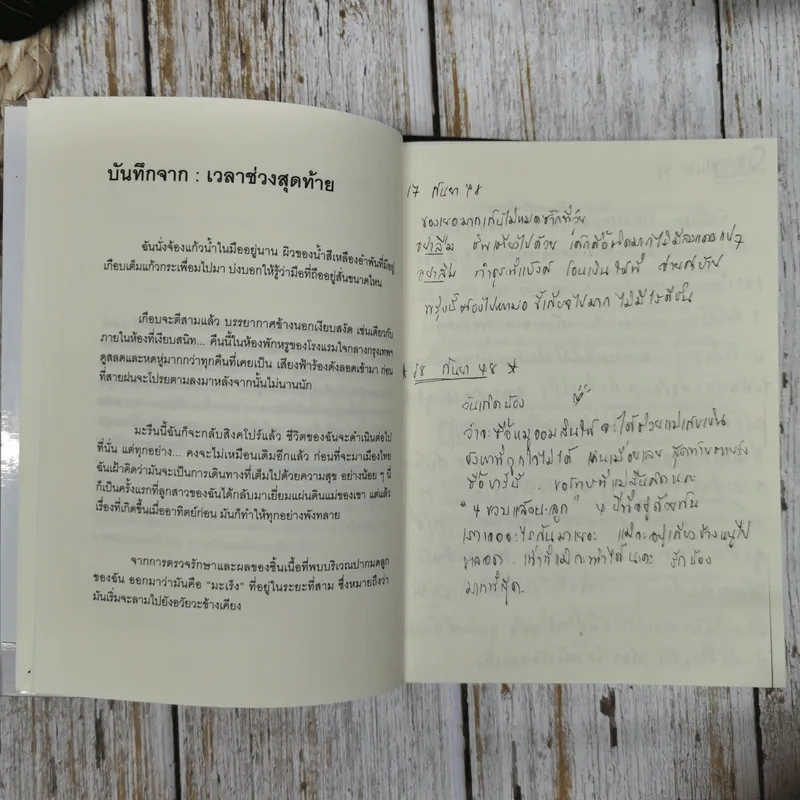 บันทึกจาก : เวลาช่วงสุดท้าย
ฉันนั่งจ้องแก้วน้ำในมืออยู่นาน ผิวของน้ำสีเหลืองอำพันที่มีอยู่
เกือบเต็มแก้วกระเพื่อมไปมา บ่งบอกให้รู้ว่ามือที่ถืออยู่สั่นขนาดไหน
เกือบจะตีสามแล้ว บรรยากาศข้างนอกเงียบสงัด เช่นเดียวกับ
ภายในห้องที่เงียบสนิท... คืนนี้ในห้องพักหรูของโรงแรมใจกลางกรุงเทพฯ
ดูสลดและหดหู่มากกว่าทุกคืนที่เคยเป็น เสียงฟ้าร้องดังลอดเข้ามา ก่อน
ที่สายฝนจะโปรยตามลงมาหลังจากนั้นไม่นานนัก
มะรืนนี้ฉันก็จะกลับสิงคโปร์แล้ว ชีวิตของฉันจะดำเนินต่อไป
ที่นั่น แต่ทุกอย่าง... คงจะไม่เหมือนเดิมอีกแล้ว ก่อนที่จะมาเมืองไทย
ฉันเฝ้าคิดว่ามันจะเป็นการเดินทางที่เต็มไปด้วยความสุข อย่างน้อย ๆ นี่
ก็เป็นครั้งแรกที่ลูกสาวของฉันได้กลับมาเยี่ยมแผ่นดินแม่ของเขา แต่แล้ว
เรื่องที่เกิดขึ้นเมื่ออาทิตย์ก่อน มันก็ทำให้ทุกอย่างพังทลาย
จากการตรวจรักษาและผลของชิ้นเนื้อที่พบบริเวณปากมดลูก
ของฉัน ออกมาว่ามันคือ "มะเร็ง" ที่อยู่ในระยะที่สาม ซึ่งหมายถึงว่า
มันเริ่มจะลามไปยังอวัยวะข้างเคียง
17 กันยา 48
ของเยอะมากเก็บไม่หมดซักที
อย่าลืม
อย่าลืม โอนเงินให้พี่
พรุ่งนี้ต้องไปหาหมอ ขี้เกียจไปมาก ไม่มีไรดีขึ้น
* 18 กันยา 48 *
วันเกิดน้อง
ว่าจะซื้อหมูออมสินให้
หาที่ถูกใจไม่ได้ เดินเมื่อยเลย สุดท้าย
ซื้อบาร์บี้... ขอโทษที่แม่ลืมสัญญานะ
"4 ขวบแล้วนะลูก" 4 ปีที่อยู่ด้วยกัน
เราเจออะไรกันมาเยอะ แม่จะอยู่เคียงข้างหนูไป
ตลอด.. เท่าที่แม่จะทำได้นะคะ รักน้อง
มากที่สุด.